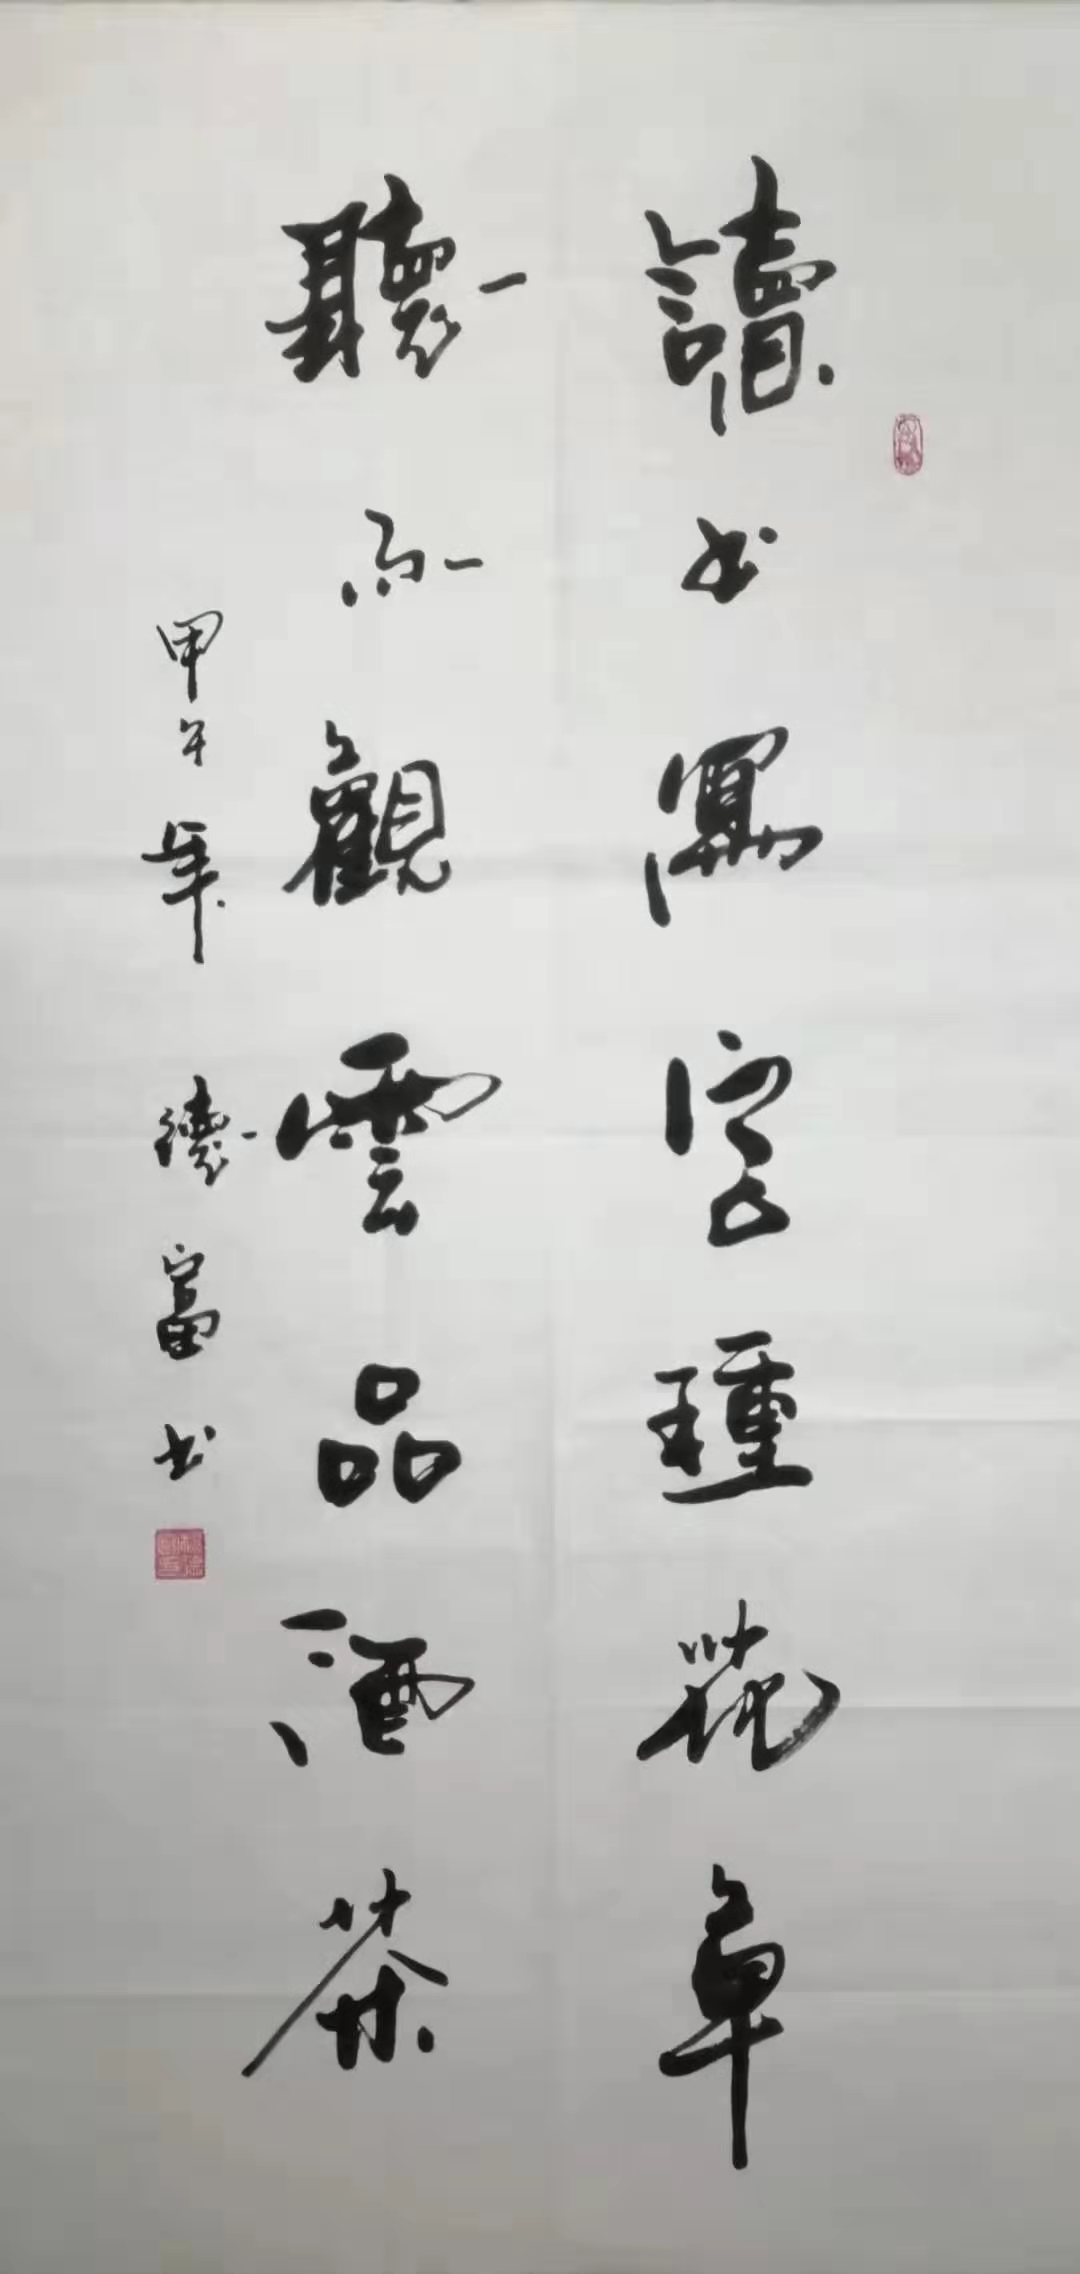 讀书寫字種花草
聽雨觀雲品酒茶
甲午年 德富书